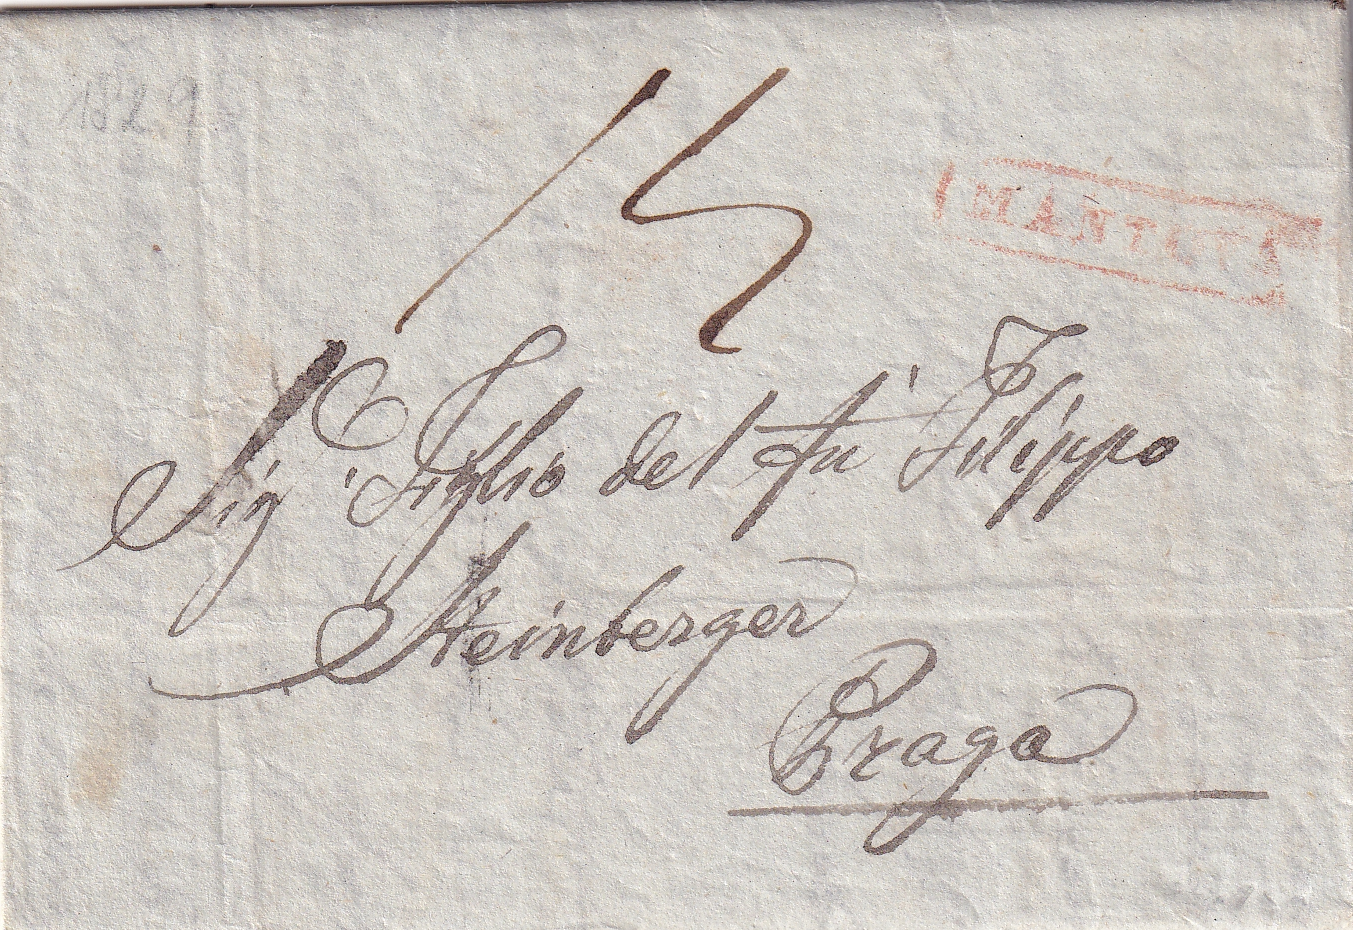 1829
15
MANTOVA
Sig.' Figlio del Fu' Filippo
Steinberger
Praga